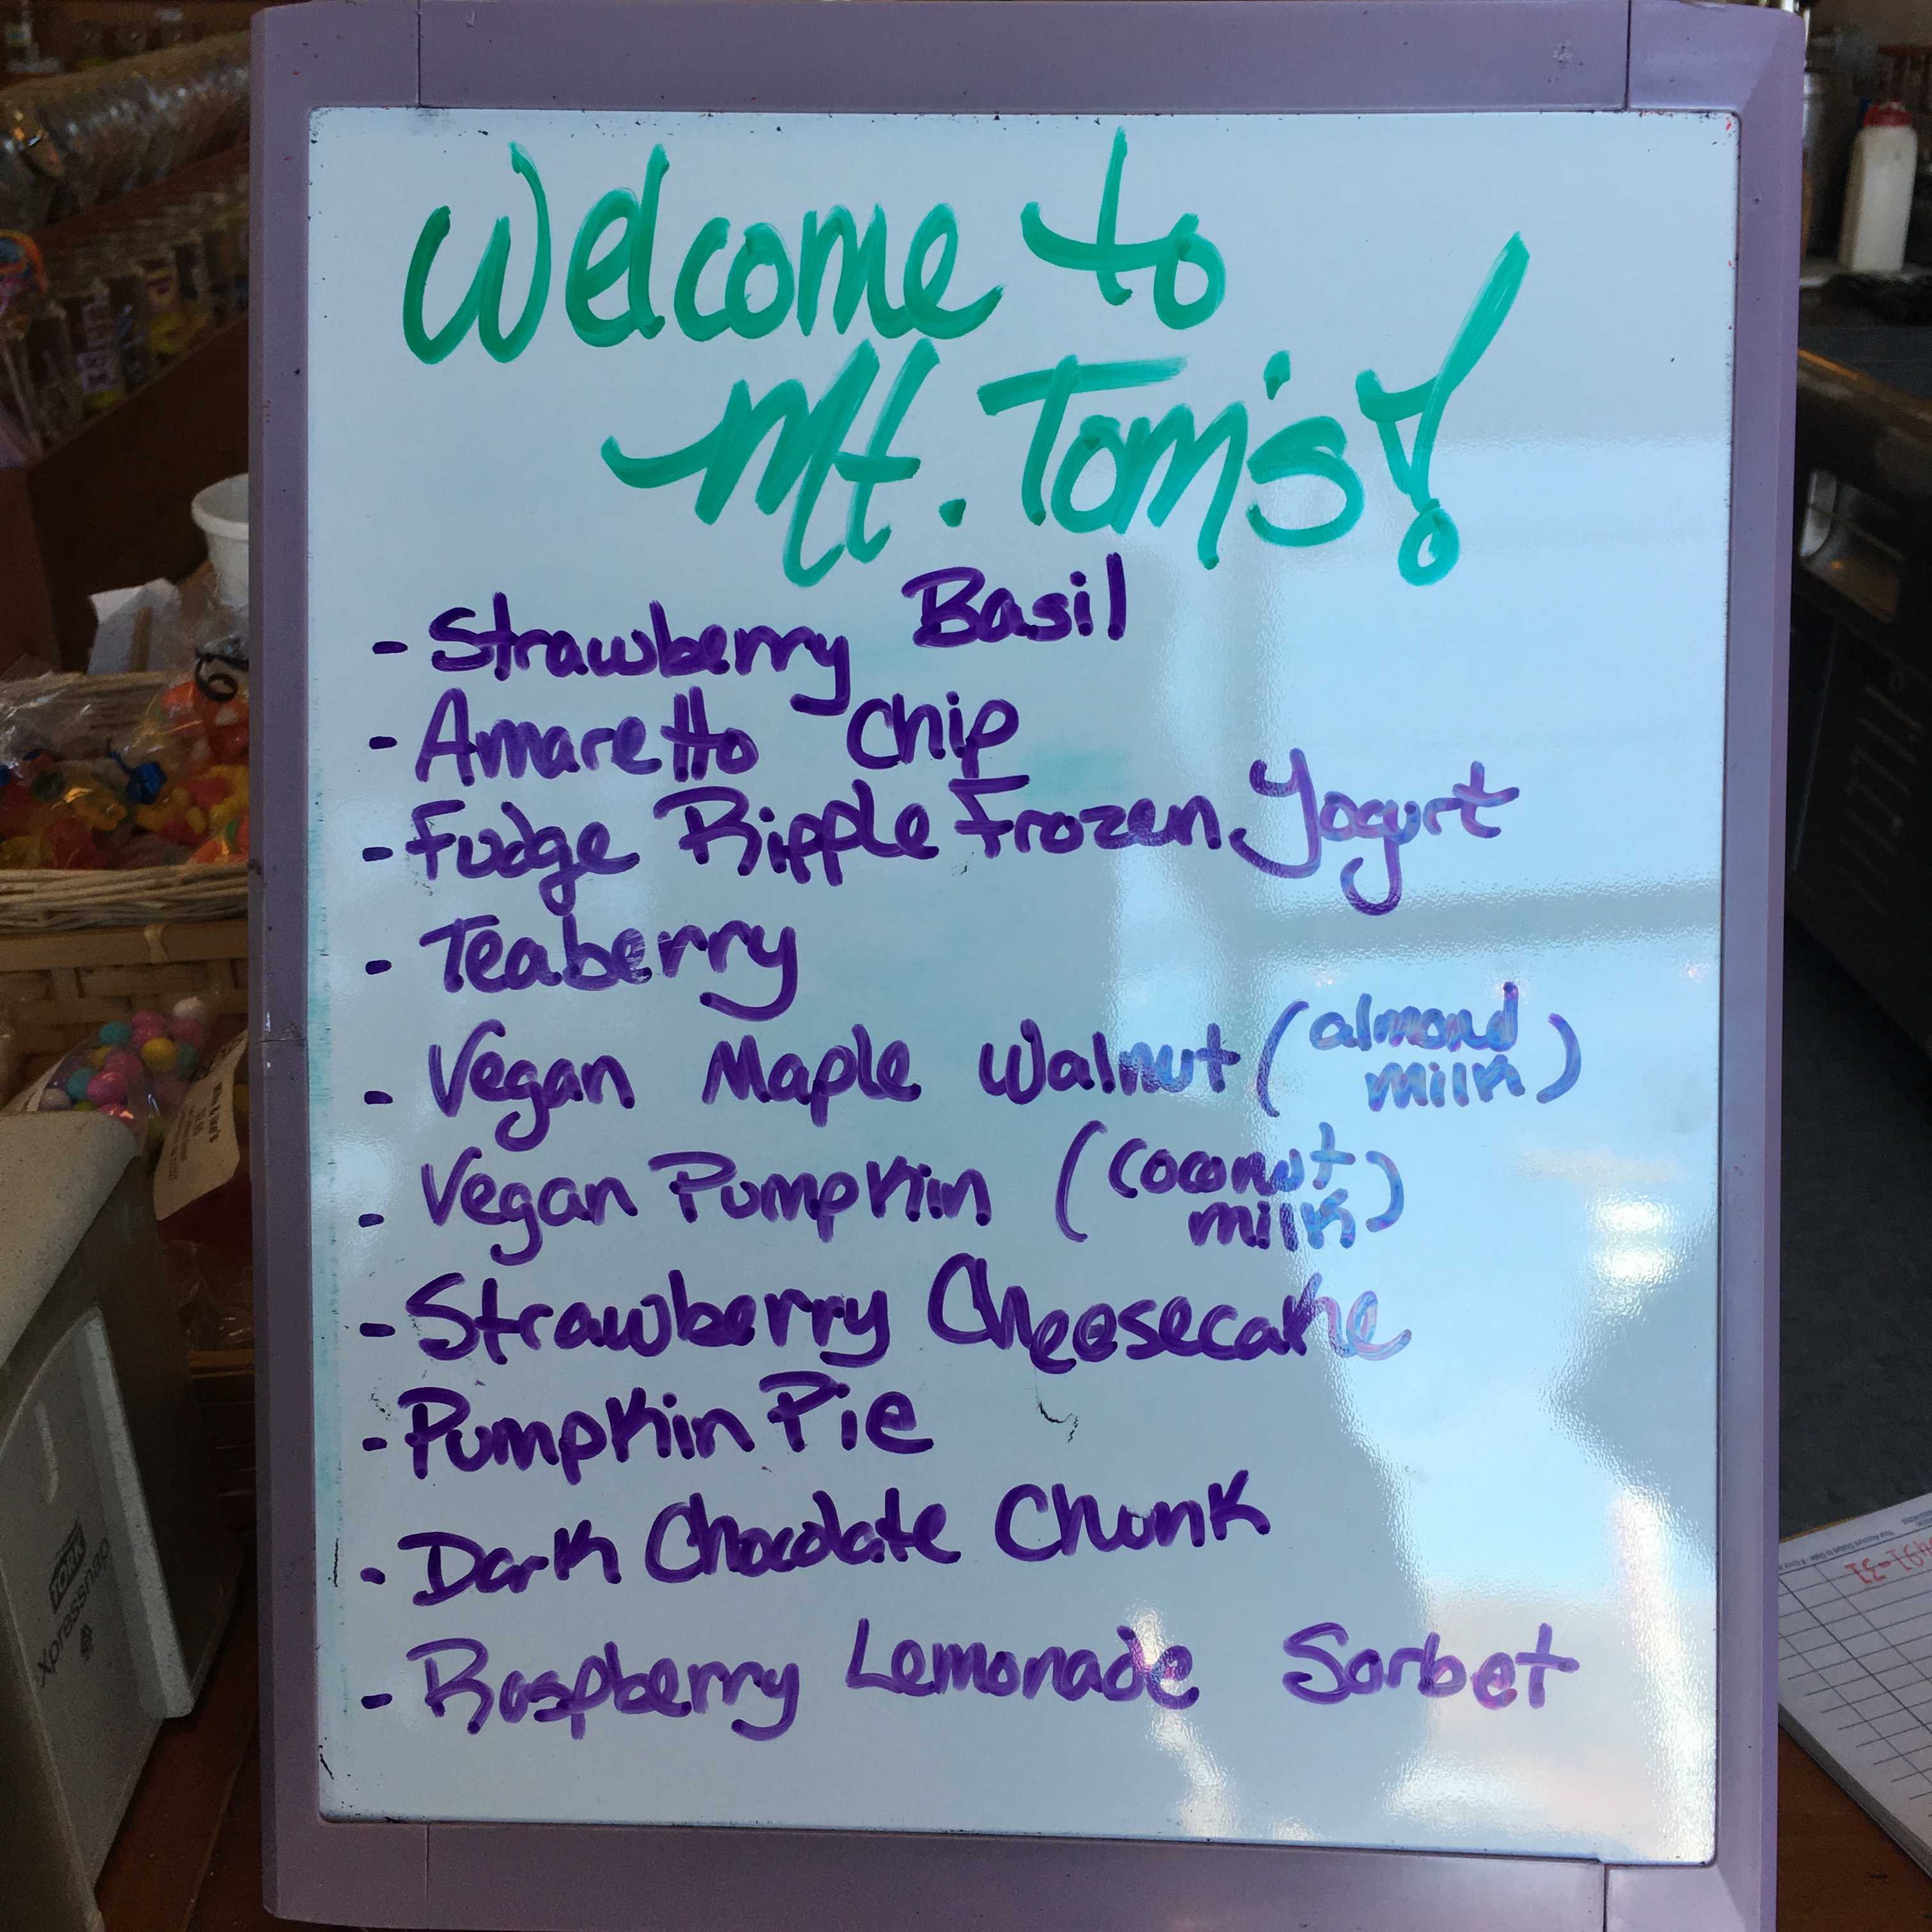 Welcome to
Mt. Tom's!
- Strawberry Basil
- Amaretto Chip
- Fudge Ripple Frozen Yogurt
- Teaberry
- Vegan Maple Walnut (almond
milk)
- Vegan Pumpkin (coconut
milk)
- Strawberry Cheesecake
- Pumpkin Pie
- Dark Chocolate Chunk
- Raspberry Lemonade Sorbet
TORK
Xpressnap